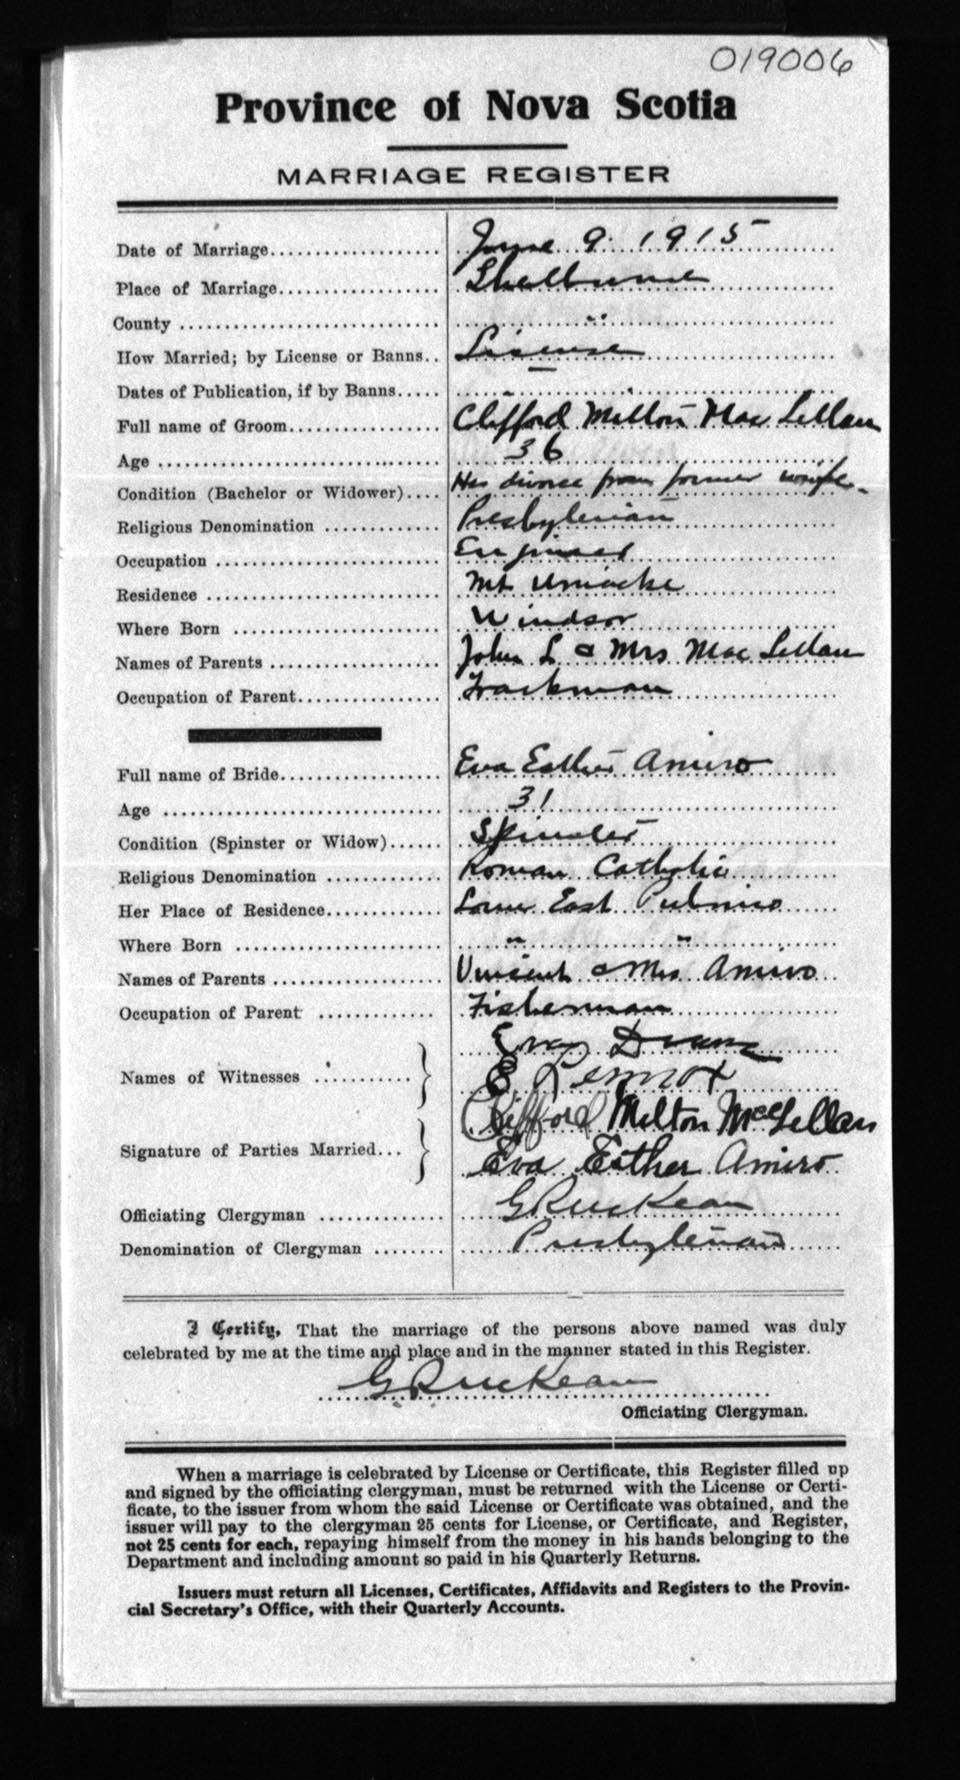 019006
Province of Nova Scotia
MARRIAGE REGISTER
Date of Marriage................... June 9. 1915
Place of Marriage.................. Shelburne
County ............................. " 
How Married; by License or Banns.. License
Dates of Publication, if by Banns..... —
Full name of Groom................. Clifford Milton MacLellan
Age ............................... 36
Condition (Bachelor or Widower).... Has divorce from former wife.
Religious Denomination ............. Presbyterian
Occupation ......................... Engineer
Residence .......................... Mt Uniacke
Where Born ......................... Windsor
Names of Parents ................... John L & Mrs MacLellan
Occupation of Parent................ Trackman
Full name of Bride.................. Eva Esther Amiro
Age ................................ 31
Condition (Spinster or Widow)...... Spinster
Religious Denomination ............. Roman Catholic
Her Place of Residence............. Lower East Pubnico
Where Born ......................... " "
Names of Parents ................... Vincent & Mrs Amiro
Occupation of Parent ............. Fisherman
Names of Witnesses ...........
E Lennox
Clifford Milton MacLellan
Signature of Parties Married...
Eva Esther Amiro
Officiating Clergyman ..............
Denomination of Clergyman ........ Presbyterian
I Certify, That the marriage of the persons above named was duly
celebrated by me at the time and place and in the manner stated in this Register.
Officiating Clergyman.
When a marriage is celebrated by License or Certificate, this Register filled up
and signed by the officiating clergyman, must be returned with the License or Certi-
ficate, to the issuer from whom the said License or Certificate was obtained, and the
issuer will pay to the clergyman 25 cents for License, or Certificate, and Register,
not 25 cents for each, repaying himself from the money in his hands belonging to the
Department and including amount so paid in his Quarterly Returns.
Issuers must return all Licenses, Certificates, Affidavits and Registers to the Provin-
cial Secretary's Office, with their Quarterly Accounts.